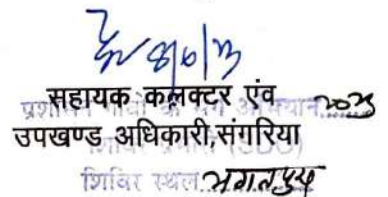 8/6/23
सहायक कलक्टर एंव
प्रशासन गांवों के संग अभियान.....2023
उपखण्ड अधिकारी,संगरिया
शिविर प्रभारी (SDO)
शिविर स्थल भगतपुरा